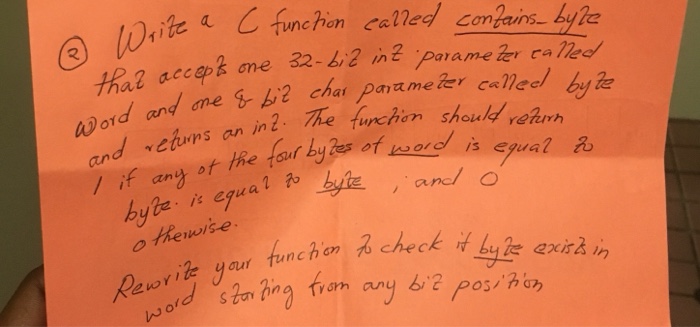 ② Write a C function called contains_byte
that accepts one 32-bit int parameter called
word and one 8 bit char parameter called byte
and returns an int. The function should return
1 if any of the four bytes of word is equal to
byte. is equal to byte, and 0
otherwise.
Rewrite your function to check if byte exists in
word starting from any bit position